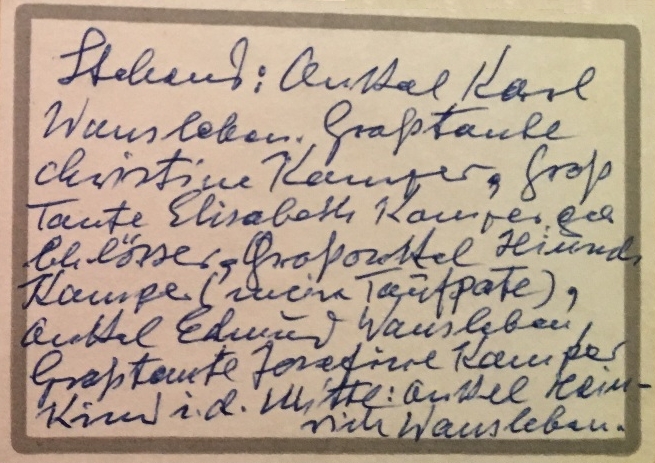 Stehend: Onkel Karl
Wansleben. Großtante
Christine Kamper, Groß
Tante Elisabeth Kamper geb
Großonkel
Kamper (mein Taufpate),
Onkel Edmund Wansleben,
Großtante Josefine Kamper
Kind i.d. Mitte: Onkel Hein-
rich Wansleben.